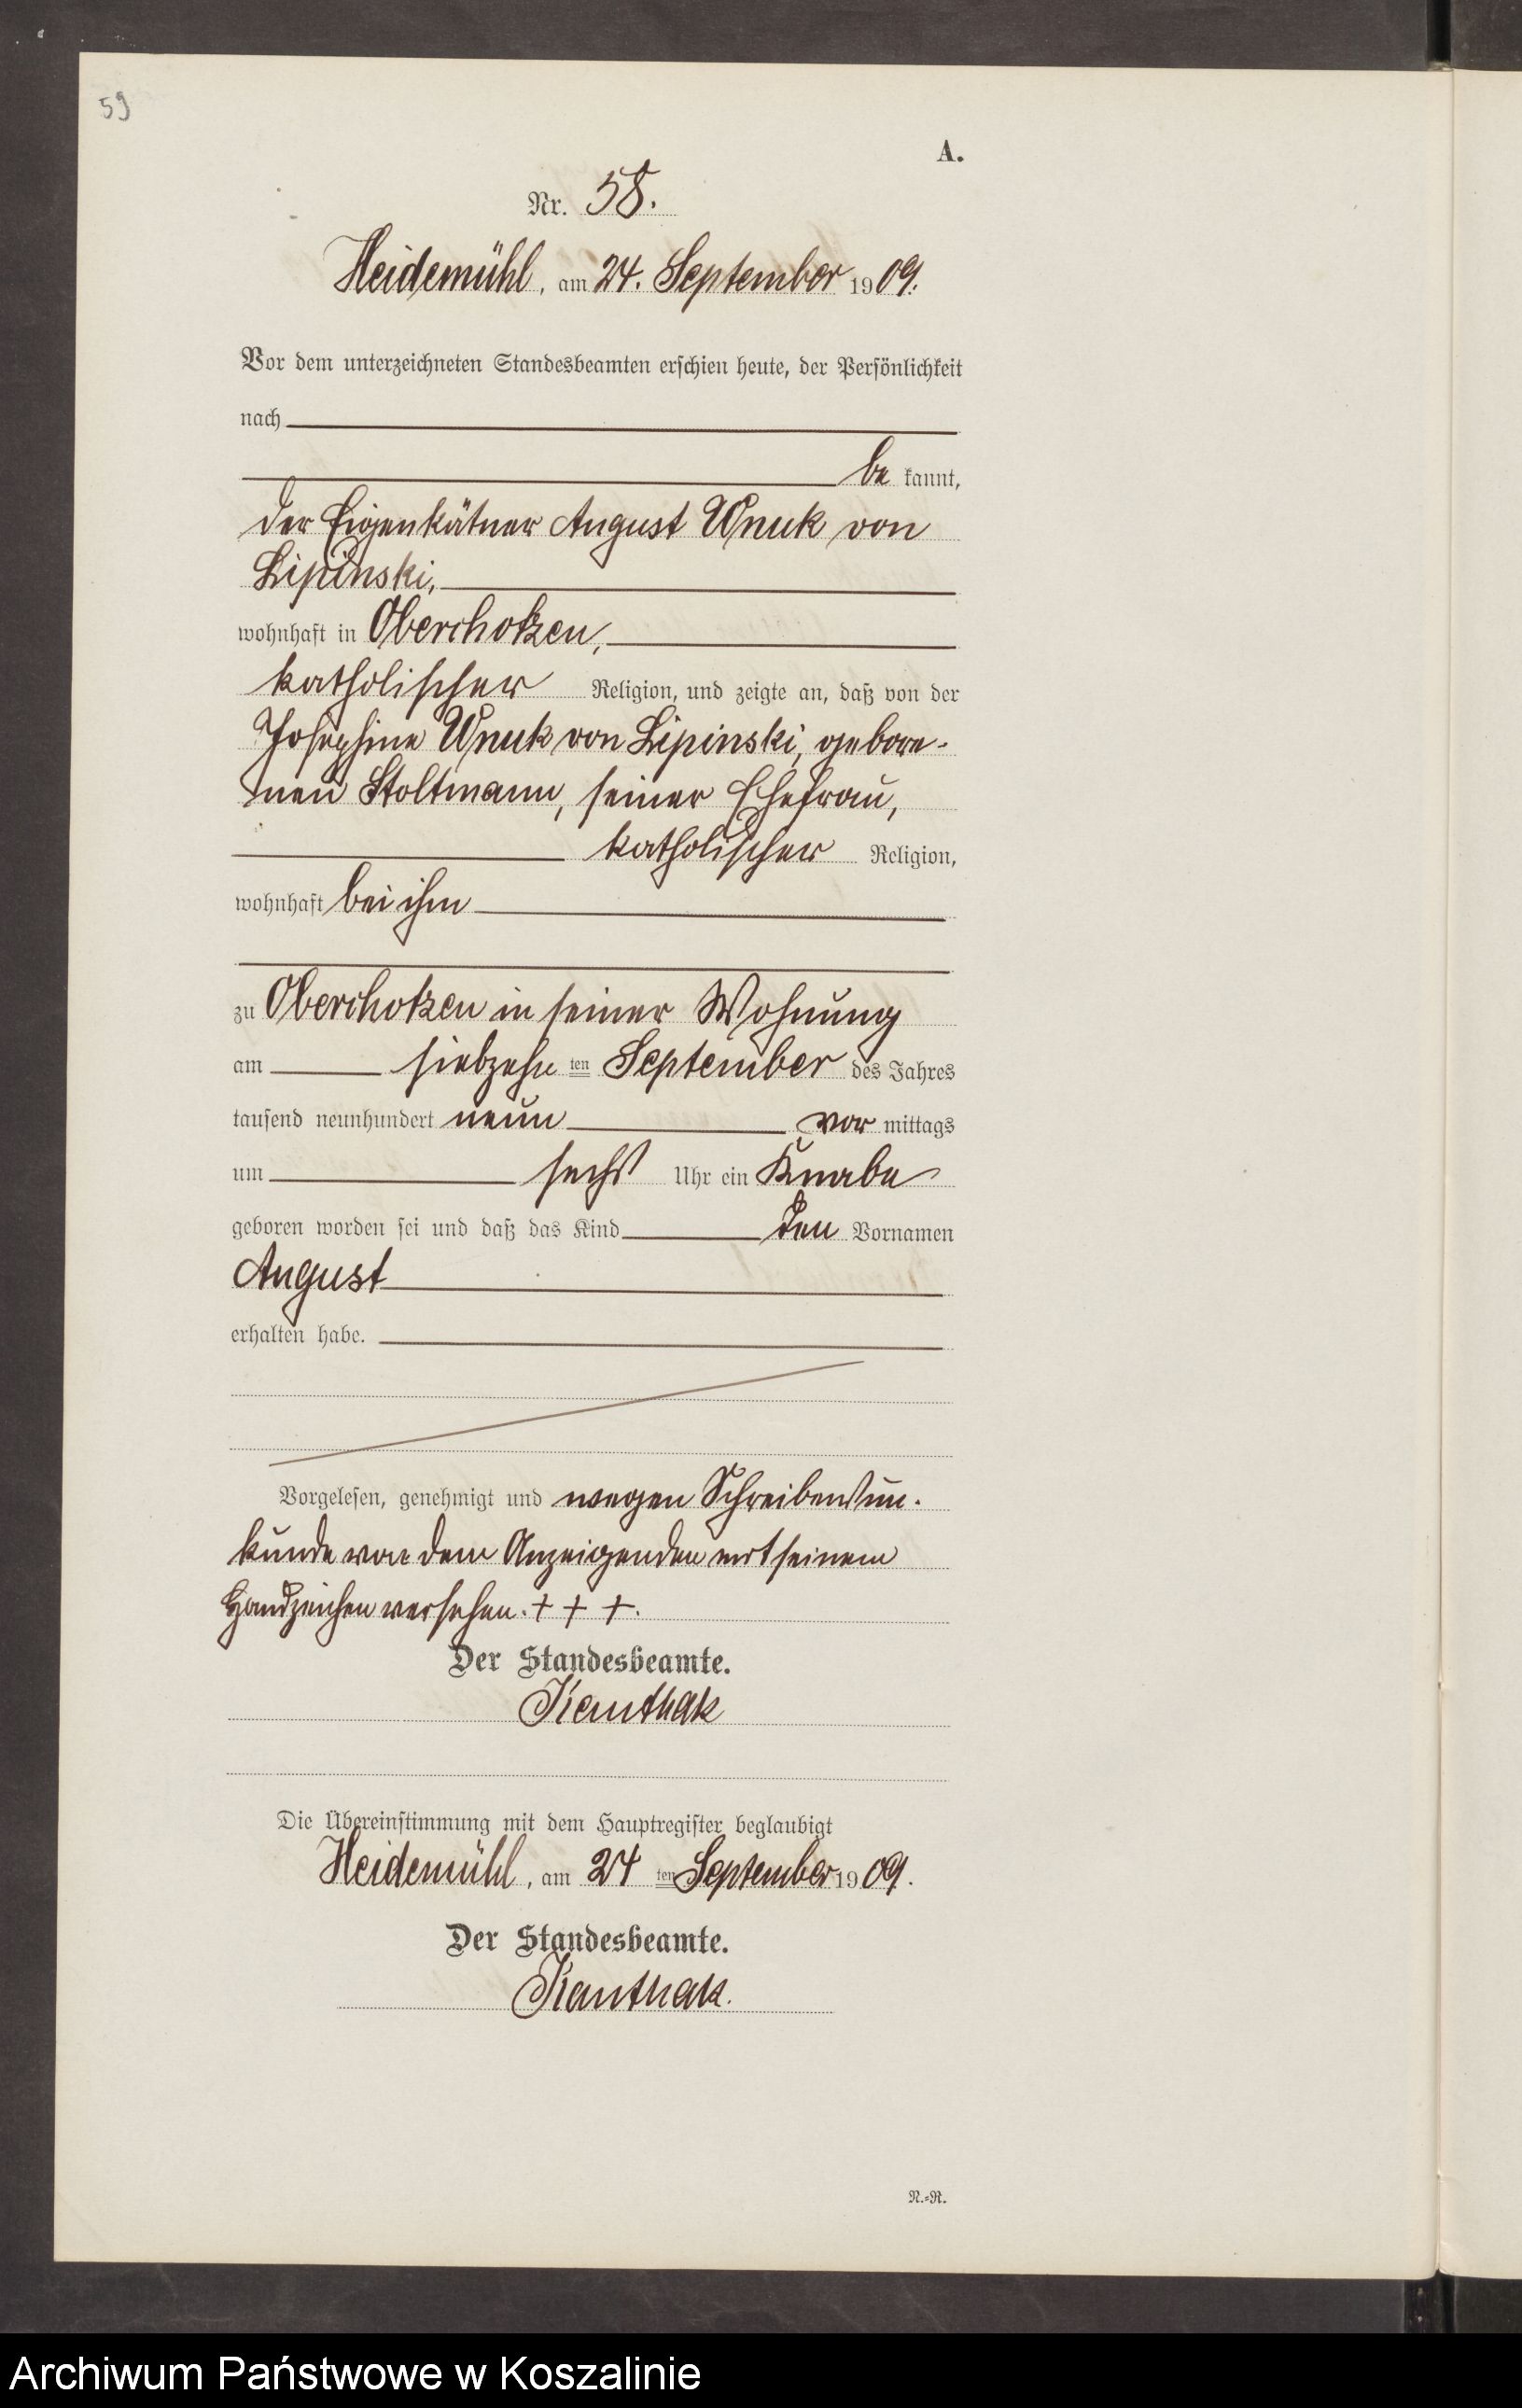 59
A.
Nr. 58.
Heidemühl, am 24. September 1909.
Vor dem unterzeichneten Standesbeamten erschien heute, der Persönlichkeit
nach
be kannt,
der Eigenkätner August Wnuk von
Lipinski,
wohnhaft in Oberchotzen,
katholischer Religion, und zeigte an, daß von der
Josephine Wnuk von Lipinski, gebore-
nen Stoltmann, seiner Ehefrau,
katholischer Religion,
wohnhaft bei ihm
zu Oberchotzen in seiner Wohnung
am siebzehn ten September des Jahres
tausend neunhundert neun vor mittags
um sechs Uhr ein Knabe
geboren worden sei und daß das Kind den Vornamen
August
erhalten habe.
Vorgelesen, genehmigt und wegen Schreibensun-
kunde von dem Anzeigenden mit seinem
Handzeichen versehen. + + +.
Der Standesbeamte.
Kanthak
Die Übereinstimmung mit dem Hauptregister beglaubigt
Heidemühl, am 24 ten September 1909.
Der Standesbeamte.
Kanthak.
N.=R.
Archiwum Państwowe w Koszalinie